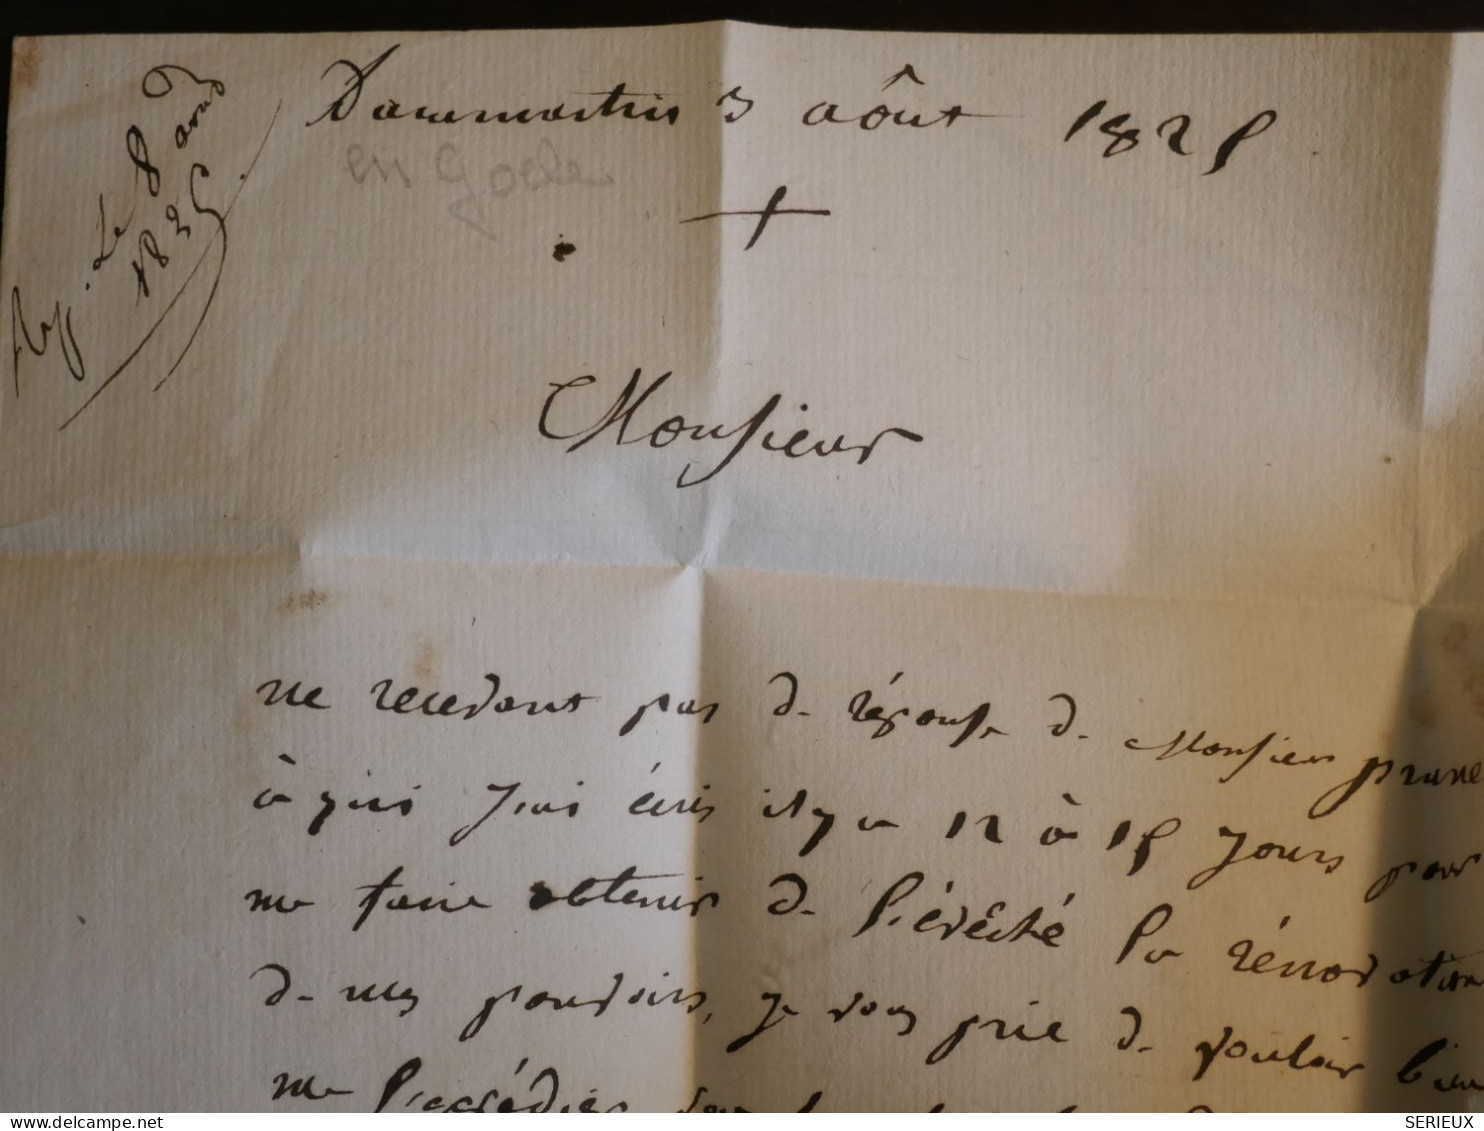 Rep. Le 8 aoud
1835
Dammartin 3 aôut 1825
en Goele
+
Monsieur
ne recevant pas de réponse de Monsieur prune
à qui j'ai écris il y a 12 à 15 jours pour
me faire obtenir de l'évêché la rénovation
de mes pouvoirs, je vous prie de vouloir bien
me les expédier
SERIEUX